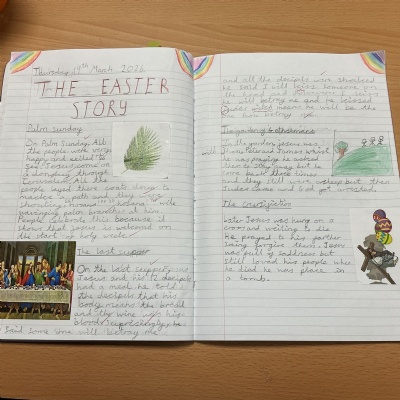 Thursday 19th March 2026
THE EASTER
STORY
Palm sunday
On Palm Sunday, All
the people were very
happy and exited to
see Jesus come on
a donkey through
Jerusalem. All the
people layed there coats down to
make a path and they
shouting, hosana with
waveing palm branches at him.
People celebrate this because it
shows that jesus is welcomed on
the start of holy week.
The last supper
On the last supper
Jesus and his 12 disciples
had a meal he told
the disciples that his
body means the bread
and the wine was his
blood. Surprisingly, he
said some one will betray me
and all the disciples were shocked
he said I will
the bread and
he will betray me and he
Judas which means he will be the
one how betray
The garden of
In the garden jesus
with Peter and James whilst
he was praying he asked
them to stay but he
came back three times
and they still were asleep but then
Judas came and God got arrested.
The crucifiction
Later Jesus was hung on a
cross and waiting to die
He prayed to his
saing forgive them. Jesus
was full of sadness but
still loved his people when
he died he was place in
a tomb.